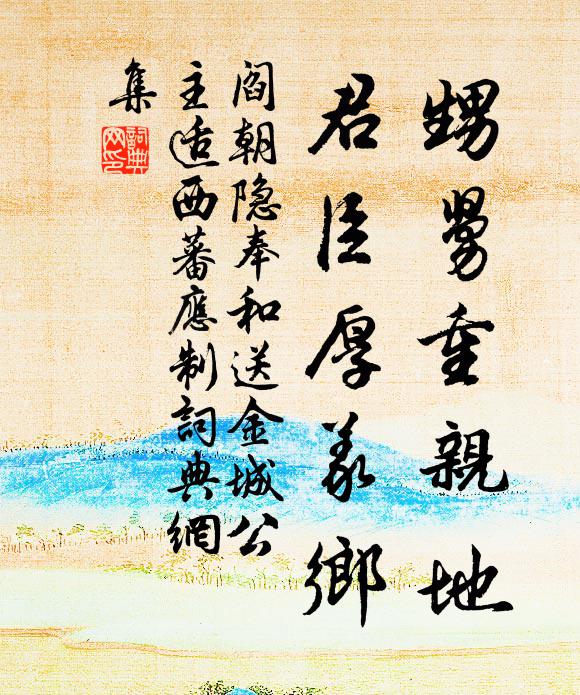 甥舅重親地
君臣厚義鄉
閻朝隐奉和送金城公
主适西蕃應制詞典網
集
詞典
网印